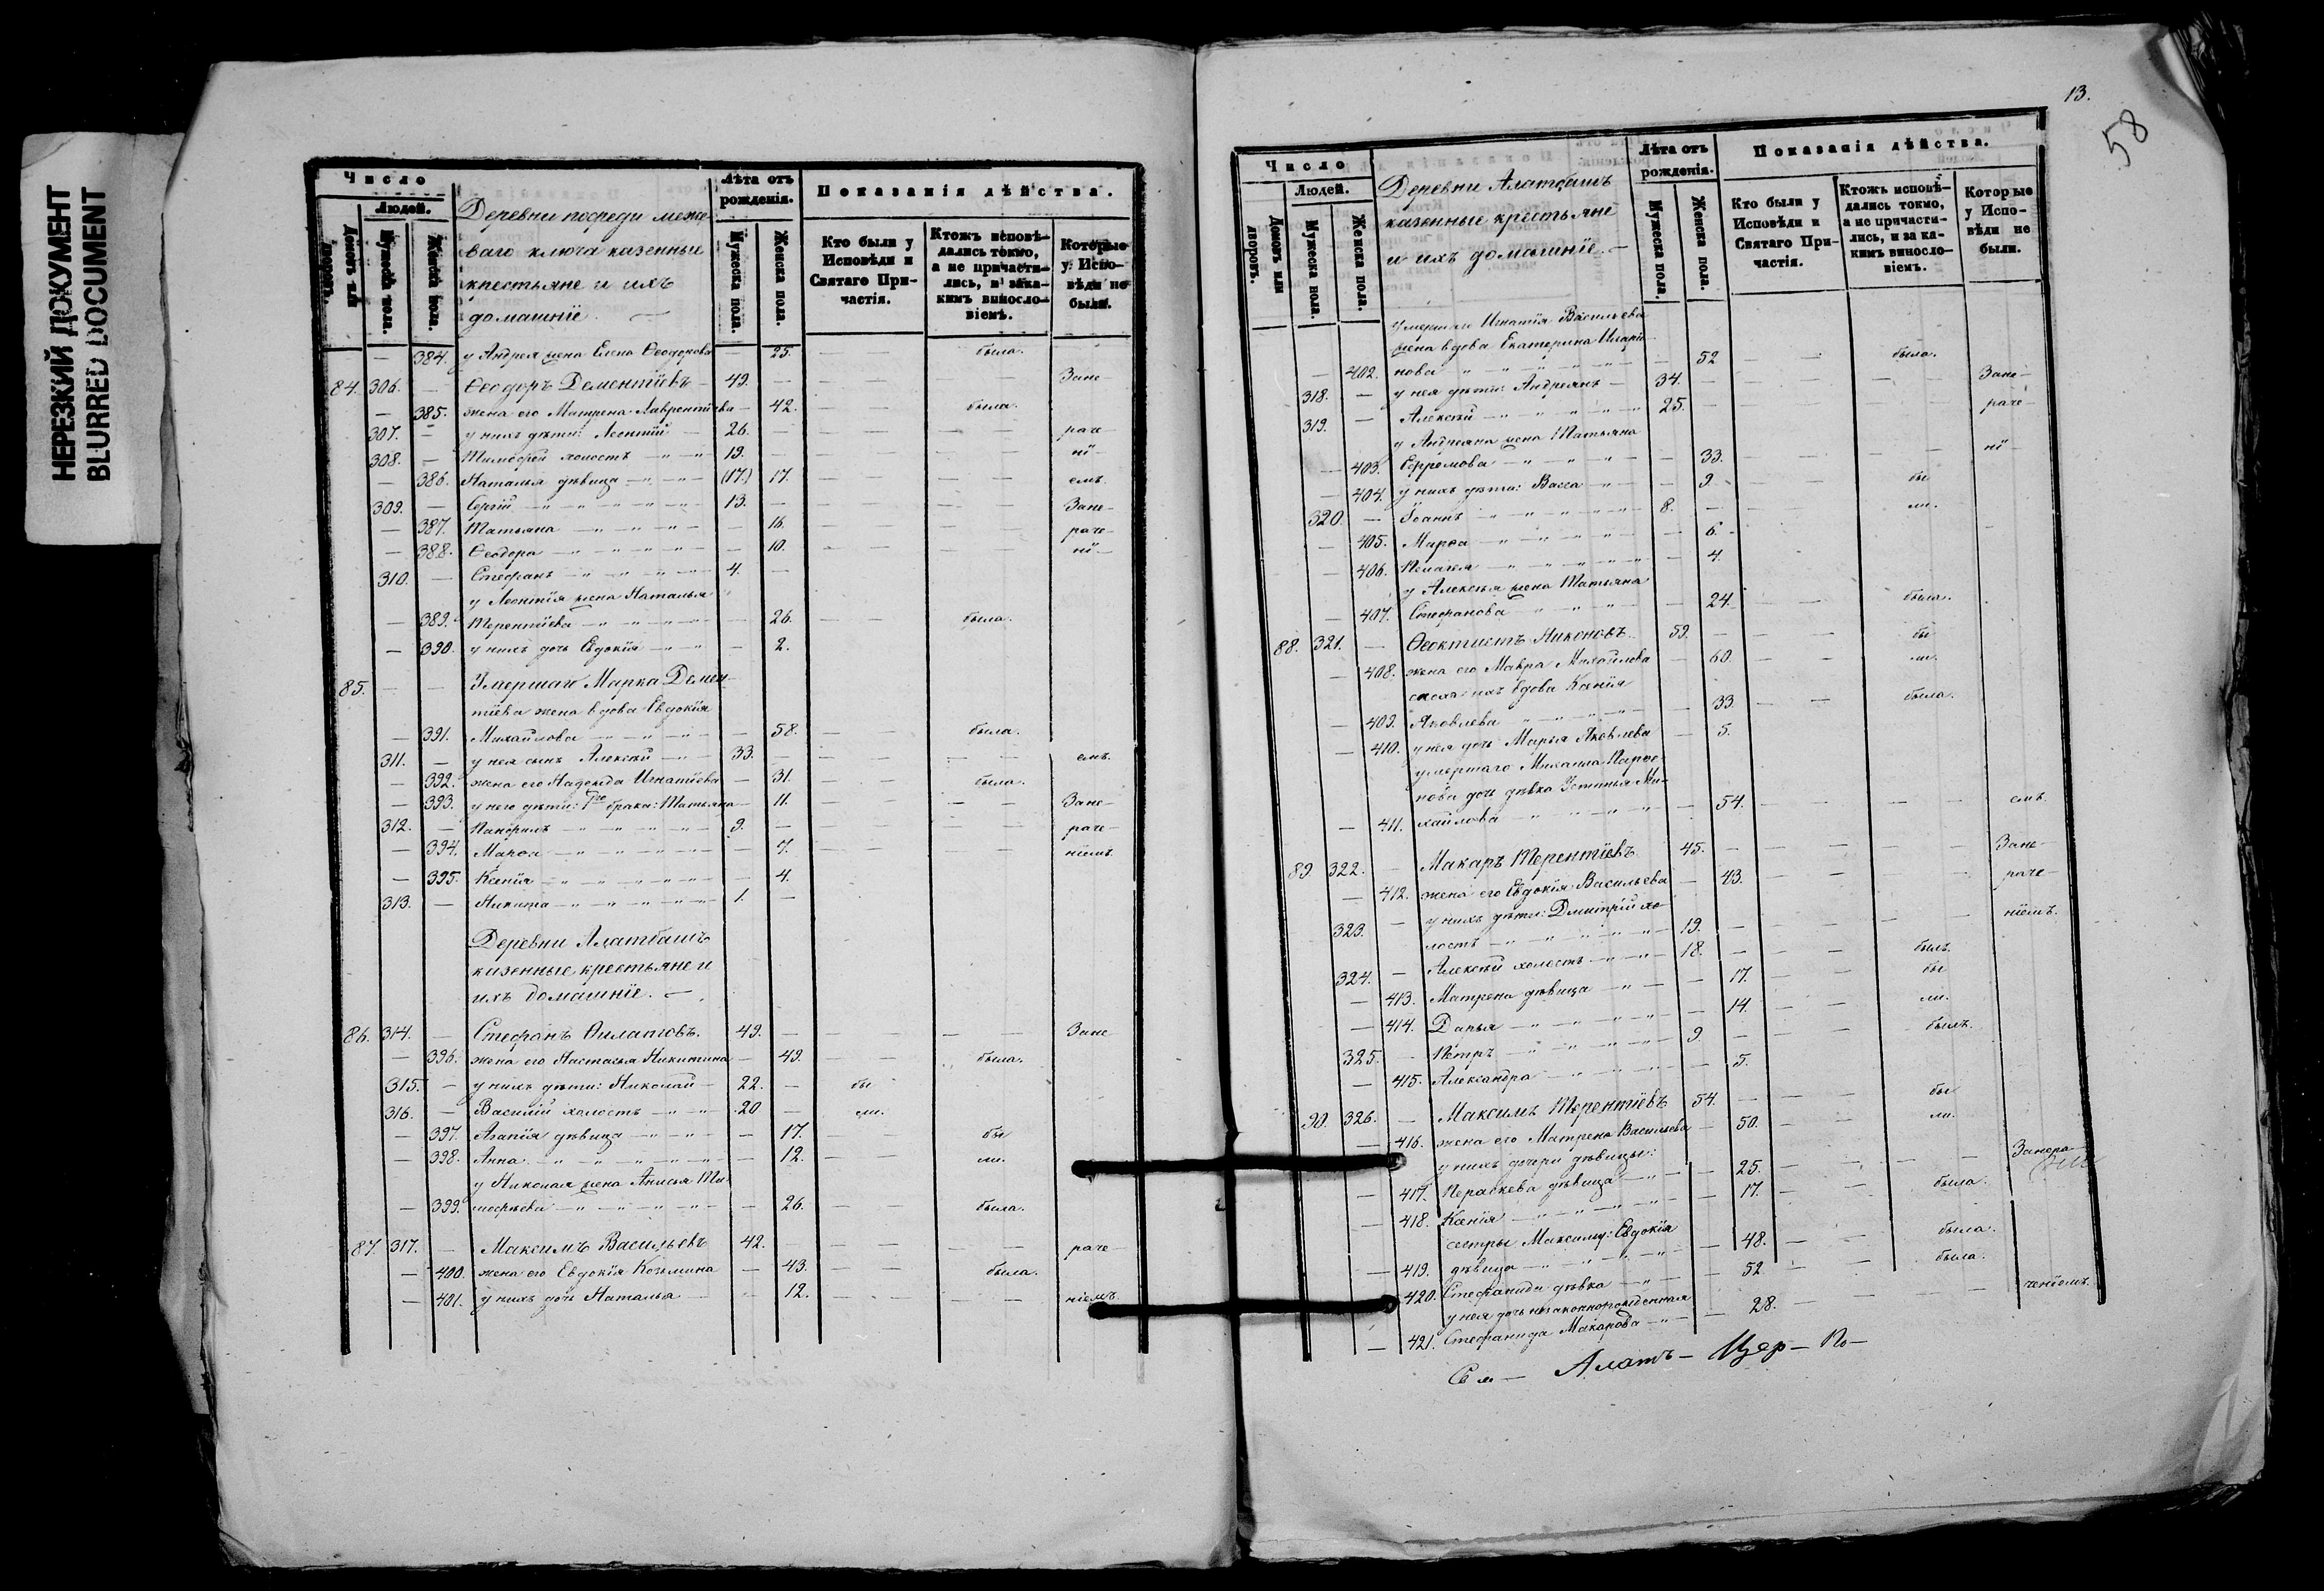 НЕРЕЗКИЙ ДОКУМЕНТ
BLURRED DOCUMENT
Число
Людей.
Домовъ или дворовъ.
Мужеска пола.
Женска пола.
Деревни посреди меже
ваго ключа казенные
крестьяне и ихъ
домашнiе. —
Лѣта отъ рожденія.
Мужеска пола.
Женска пола.
Показанія дѣйства.
Кто были у Исповѣди и Святаго Причастія.
Ктожъ исповѣдались токмо, а не причастились, и за какимъ винословіемъ.
Которые у Исповѣди не были.
— 384. у Андрея жена Елена Ѳеодорова — 25. — — была.
84. 306. — Ѳеодоръ Дементіевъ — 49. — — — Зане
— 385. жена его Матрена Лаврентіева — 42. — — была.
307. — у нихъ дѣти: Леонтій — 26. — — — раче—
308. — Тимофей холостъ — 19. — — — ні—
— 386. Наталья дѣвица — (17.) 17. — — — емъ.
309. — Сергій — 13. — — — Зане—
— 387. Татьяна — 16. — — — раче—
— 388. Ѳеодора — 10. — — — ні—
310. — Стефанъ — 4. —
у Леонтія жена Наталья
— 389. Терентіева — 26. — — была.
— 390. у нихъ дочь Евдокія — 2.
85. — — Умершаго Марка Демен-
тіева жена вдова Евдокія
— 391. Михайлова — 58. — — была.
311. — у нея сынъ Алексѣй — 33. — — — емъ.
— 392. жена его Надежда Игнатіева — 31. — — была.
— 393. у него дѣти: 1го брака: Татьяна — 11. — — — Зане—
312. — Панфилъ — 9. — — — раче—
— 394. Марѳа — 7. — — — ніемъ.
— 395. Ксенія — 4.
313. — Никита — 1. —
Деревни Алатбашъ
казенные крестьяне и
ихъ домашніе. —
86. 314. — Стефанъ Филатовъ. 49. — — — Зане
— 396. жена его Настасья Никитина — 49. — — была.
315. — у нихъ дѣти: Николай — 22. — бы
316. — Василій холостъ — 20 — ли.
— 397. Агапія дѣвица — 17. — — бы
— 398. Анна — 12. — — ли.
у Николая жена Анисья Ти-
— 399. мофѣева — 26. — — была.
87. 317. — Максимъ Васильевъ 42. — — — раче—
— 400. жена его Евдокія Козьмина — 43. — — была.
— 401. у нихъ дочь Наталья — 12. — — — ніемъ.
13.
58
Число
Людей.
Домовъ или дворовъ.
Мужеска пола.
Женска пола.
Деревни Алатбашъ
казенные крестьяне
и ихъ домашніе. —
Лѣта отъ рожденія.
Мужеска пола.
Женска пола.
Показанія дѣйства.
Кто были у Исповѣди и Святаго Причастія.
Ктожъ исповѣдались токмо, а не причастились, и за какимъ винословіемъ.
Которые у Исповѣди не были.
умершаго Игнатія Васильева
жена вдова Екатерина Иларіо-
— 402. нова — 52 — — была.
318. — у нея дѣти: Андреянъ — 34. — — — Зане—
319. — Алексѣй — 25. — — — раче—
у Андреяна жена Татьяна
— 403. Ефремова — 33. — — — ні—
— 404. у нихъ дѣти: Васса — 9. — — бы
320. — Іоаннъ — 8. — ли.
— 405. Марѳа — 6.
— 406. Пелагея — 4.
у Алексѣя жена Татьяна
— 407. Стефанова — 24. — — была.
88. 321. — Ѳеоктистъ Никоновъ. 59. — — бы
— 408. жена его Мавра Михайлова — 60. — — ли.
сноха ихъ вдова Ксенія
— 409. Яковлева — 33. — — была.
— 410. у нея дочь Марья Яковлева — 5.
умершаго Михаила Парфе-
нова дочь дѣвка Устинья Ми-
— 411. хайлова — 54. — — — емъ.
89 322. — Макаръ Терентіевъ 45. — — — Зане—
— 412. жена его Евдокія Васильева — 43. — — раче—
323. — у нихъ дѣти: Дмитрій хо-
лостъ — 19. — — — ніемъ.
324. — Алексѣй холостъ — 18. — — былъ.
— 413. Матрена дѣвица — 17. — — бы
— 414. Дарья — 14. — — ли.
325. — Петръ — 9. — — былъ.
— 415. Александра — 5.
90. 326. — Максимъ Терентіевъ 54. — — бы
— 416. жена его Матрена Васильева — 50. — — ли.
у нихъ дочери дѣвицы:
— 417. Параскева дѣвица — 25. — — — Занера
— 418. Ксенія — 17. — — была.
сестры Максиму: Евдокія
— 419. дѣвица — 48. — — была.
— 420. Стефанида дѣвка — 52 — — была.
у нея дочь незаконнорожденная
— 421. Стефанида Макарова — 28. — — — ченіемъ.
Алатъ — Цер — По —